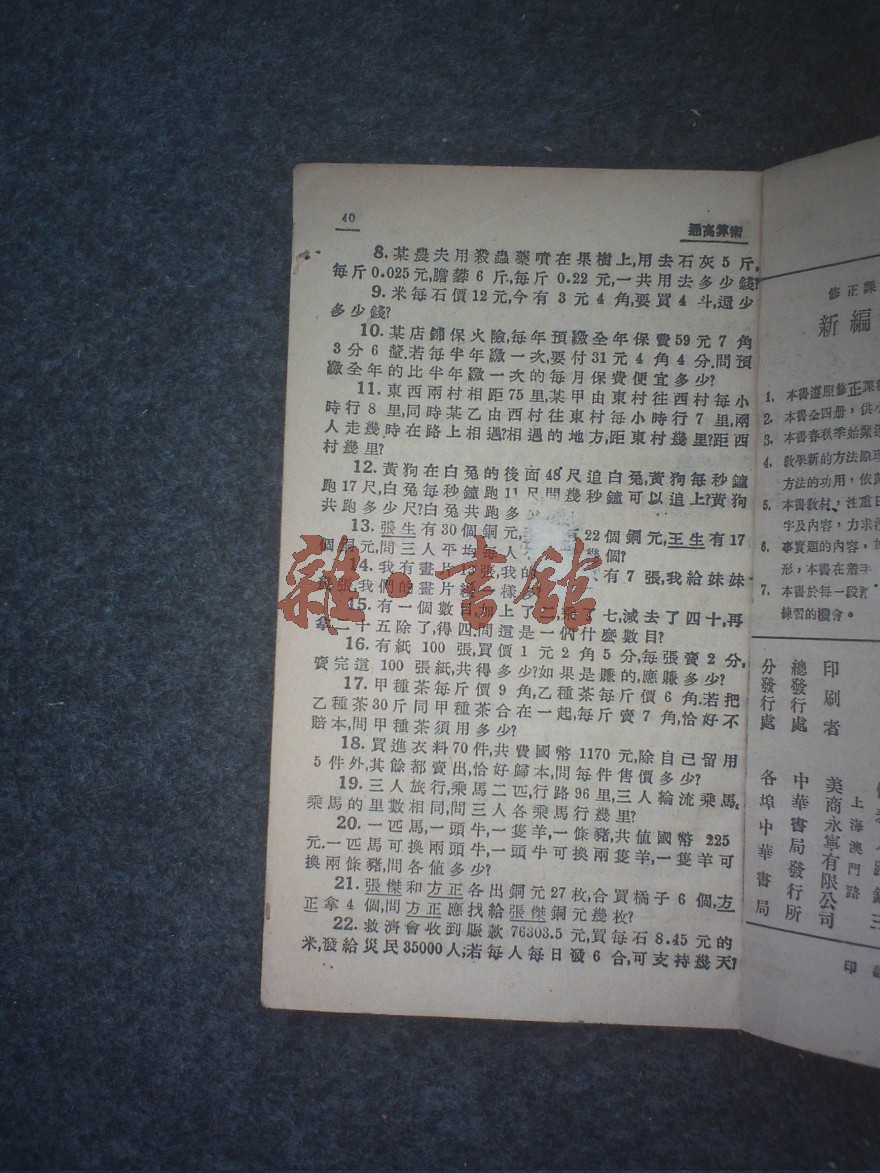 40
通高算術
8. 某農夫用殺蟲藥噴在果樹上,用去石灰5斤,
每斤0.025元,膽礬6斤,每斤0.22元,一共用去多少錢?
9. 米每石價12元,今有3元4角,要買4斗,還少
多少錢?
10. 某店鋪保火險,每年預繳全年保費59元7角
3分6釐,若每半年繳一次,要付31元4角4分.問預
繳全年的比半年繳一次的每月保費便宜多少?
11. 東西兩村相距75里,某甲由東村往西村每小
時行8里,同時某乙由西村往東村每小時行7里,兩
人走幾時在路上相遇?相遇的地方,距東村幾里?距西
村幾里?
12. 黃狗在白兔的後面48尺追白兔,黃狗每秒鐘
跑17尺,白兔每秒鐘跑11尺.問幾秒鐘可以追上?黃狗
共跑多少尺?白兔共跑多
13. 張生有30個銅元, 22個銅元,王生有17
個銅元,問三人平均每人 幾個?
14. 我有畫片13張,我的 有7張,我給妹妹
張,我們的畫片 一樣多?
15. 有一個數目,加上了 七,減去了四十,再
拿二十五除了,得四.問這是一個什麼數目?
16. 有紙100張,買價1元2角5分,每張賣2分,
賣完這100張紙,共得多少?如果是賺的,應賺多少?
17. 甲種茶每斤價9角,乙種茶每斤價6角.若把
乙種茶30斤同甲種茶合在一起,每斤賣7角,恰好不
賠本,問甲種茶須用多少?
18. 買進衣料70件,共費國幣1170元,除自己留用
5件外,其餘都賣出,恰好歸本,問每件售價多少?
19. 三人旅行,乘馬二匹,行路96里,三人輪流乘馬,
乘馬的里數相同,問三人各乘馬行幾里?
20. 一匹馬,一頭牛,一隻羊,一條豬,共值國幣225
元.一匹馬可換兩頭牛,一頭牛可換兩隻羊,一隻羊可
換兩條豬,問各值多少?
21. 張傑和方正各出銅元27枚,合買橘子6個,方
正拿4個,問方正應找給張傑銅元幾枚?
22. 救濟會收到賑款76303.5元,買每石8.45元的
米,發給災民35000人,若每人每日發6合,可支持幾天?
雜·書館
修正課
新編
1. 本書遵照修正課
2. 本書全四册,供小
3. 本書春秋季始業
4. 教學新的方法原
方法的功用,依
5. 本書教材,注重日
字及內容,力求
6. 事實題的內容,
形,本書在着手
7. 本書於每一段
練習的機會。
印刷者
總發行處
分發行處
上海澳門路
美商永寧有限公司
中華書局發行所
各埠中華書局
印